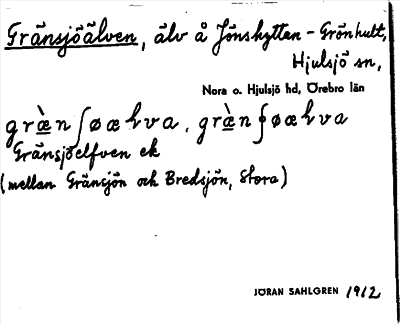 Gränsjöälven, älv å Jönshyttan - Grönhult,
Hjulsjö sn,
Nora o. Hjulsjö hd, Örebro län
græ̀nʃøæɫva, græ̀nʃøæɫva
Gränsjöelfven ek
(mellan Gränsjön och Bredsjön, Stora)
JÖRAN SAHLGREN 1912